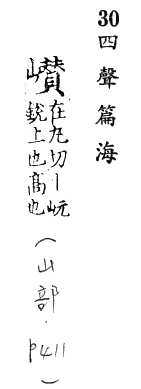 30四聲篇海
巑
在丸切丨岏
銳上也高也
(山部.P411)